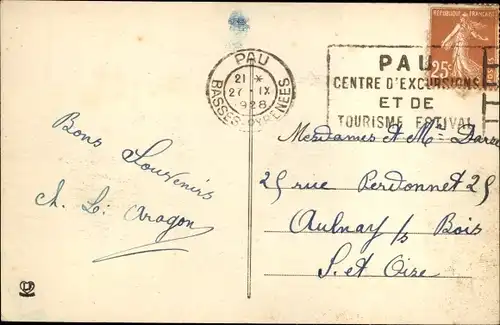 PAU
21 *
27 - IX
928
BASSES-PYRENEES
REPUBLIQUE FRANÇAISE
25c
PAU
CENTRE D'EXCURSIONS
ET DE
TOURISME ESTIVAL
Bons
Souvenirs
Aragon
Mesdames et Mr
25 rue Perdonnet 25
Aulnay s/s Bois
S. et Oise